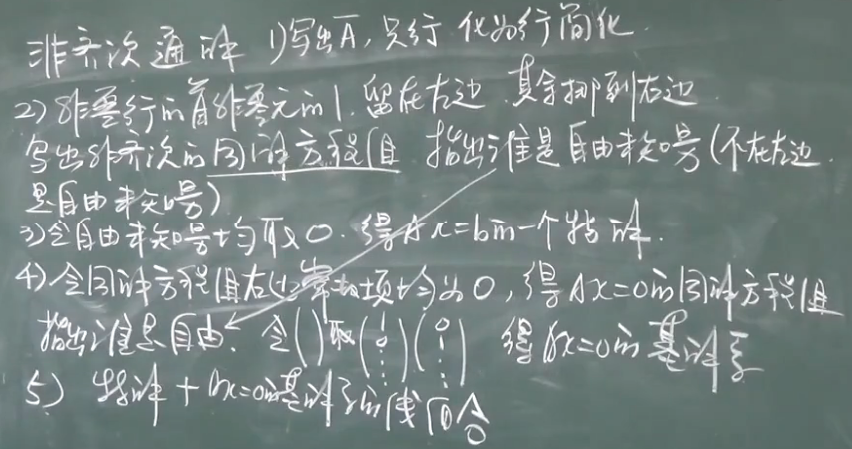 非齐次通解 1)写出Ā,只行 化为行简化
2)非零行的首非零元的1.留在左边 其余挪到右边
写出非齐次的同解方程组 指出谁是自由未知号(不在左边
是自由未知号)
3)令自由未知号均取0.得Ax=b的一个特解.
4)令同解方程组右边常数项均为0,得Ax=0的同解方程组
指出谁是自由.令()取(1 0 ⋮)(0 1 ⋮) 得Ax=0的基解系
5) 特解+Ax=0的基解系的线组合